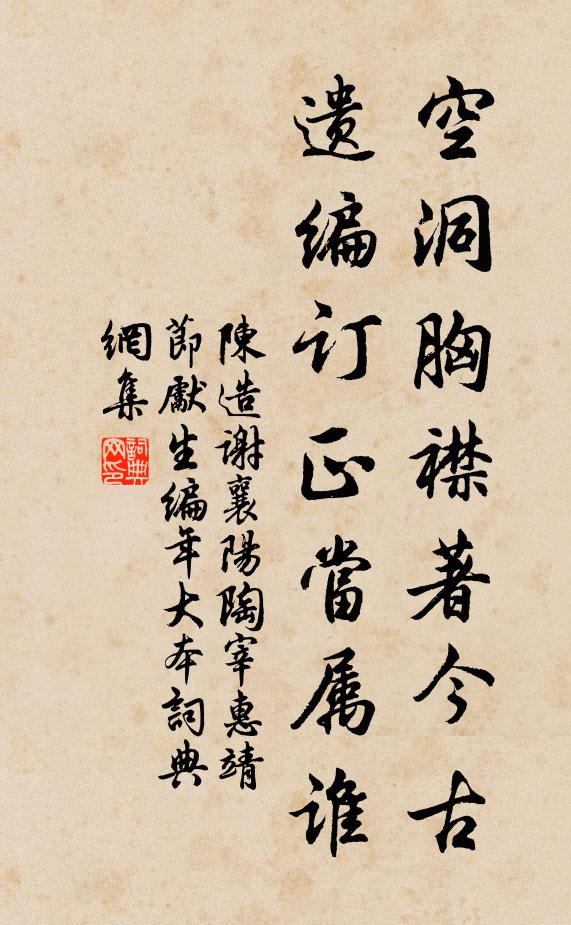 空洞胸襟著今古
遗编订正當属谁
陳造谢襄陽陶宰惠靖
節獻生编年大本詞典
網集
詞典網印